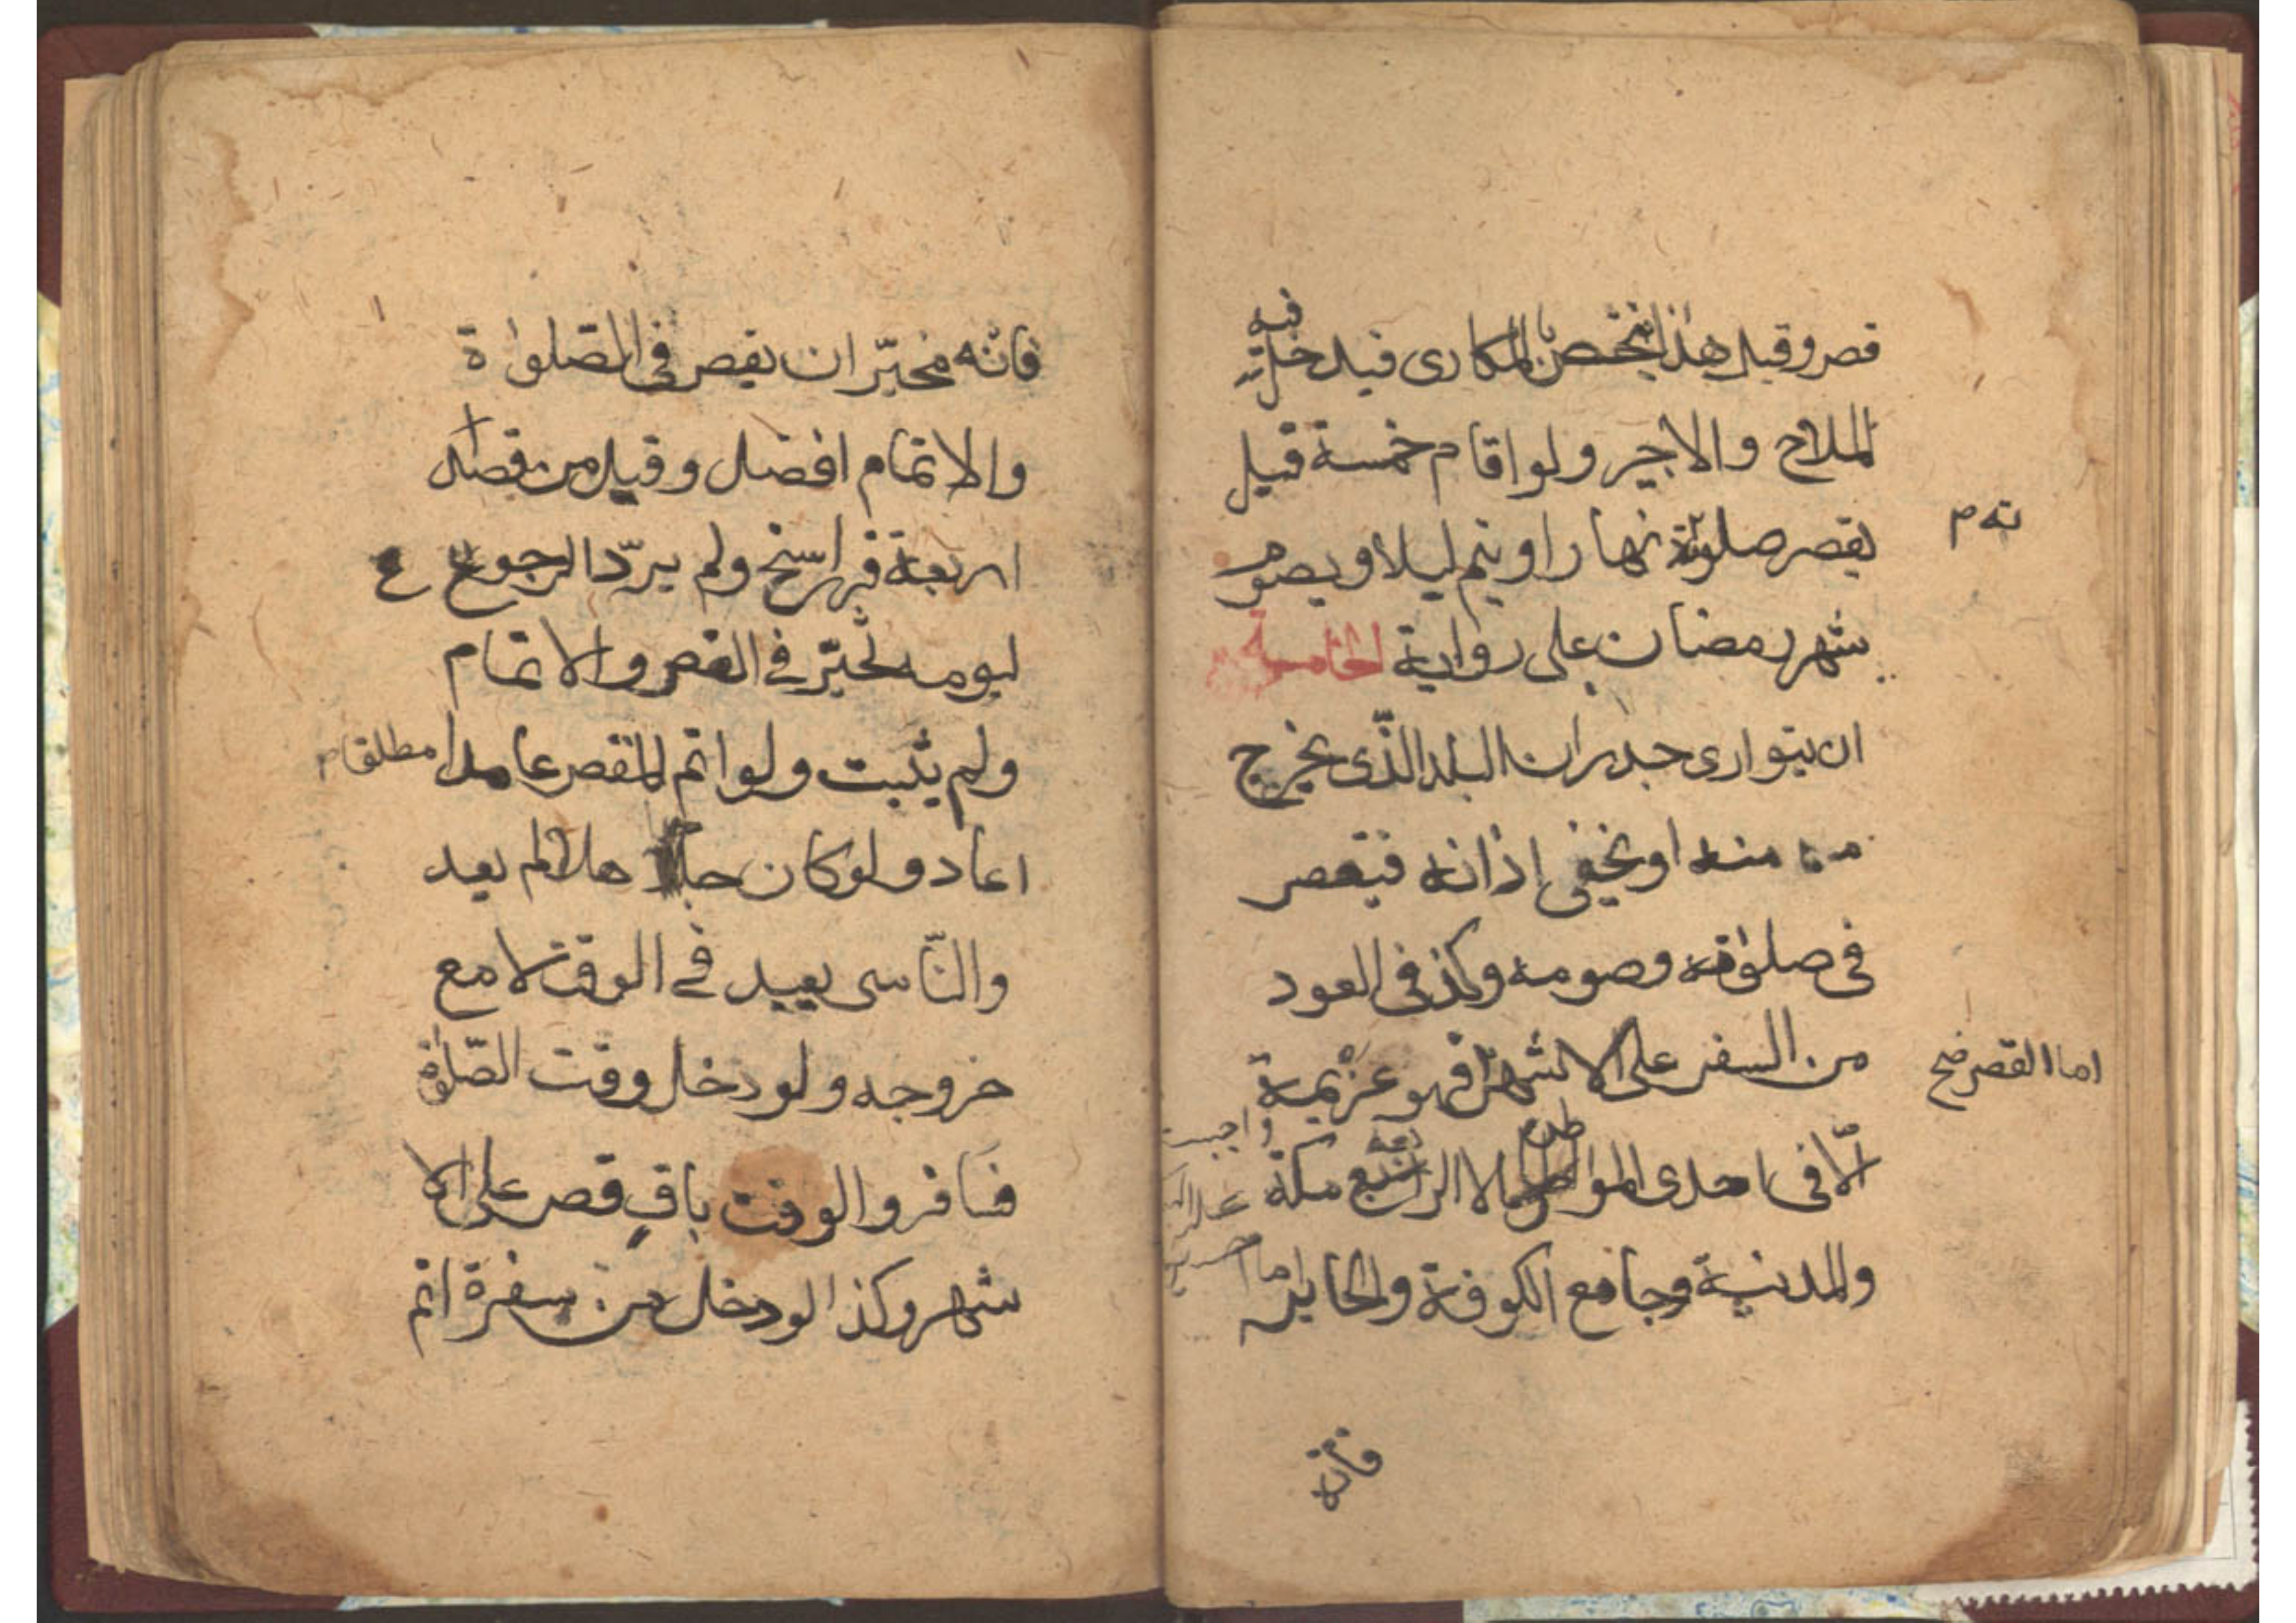 قصر وقيل هذا يختص بالمكارى فيدخل فيه
الملاح والاجير ولو اقام خمسة قيل
يقصر صلوته نهارا ويتم ليلا ويصوم
ته م
شهر رمضان على رواية الخامسة
ان يتوارى جدران البلد الذّى يخرج
منه اويخفى اذانه فيقصر
فى صلوٰته وصومه وكذ فى العود
من السفر على الاشهر فهو عزيمة
اما القصر صح
الّا فى احدى المواطن الاربعة مكة
والمدنية وجامع الكوفة والحاير
فانّه
فانّه مخيّر ان يقصر فى الصّلوٰة
والاتمام افضل وقيل من قصد
اربعة فراسخ ولم يردّ الرجوع
ليومه تخيّر فى القصر والاتمام
ولم يثبت ولو اتم المقصر عامدا
مطلقا م
اعاد ولو كان جاهلا لم يعد
والنّاسى يعيد فى الوقت لا مع
خروجه ولو دخل وقت الصّلوٰة
فسافر والوقت باقٍ قصر على الا
شهر وكذا لو دخل من سفرة اتم